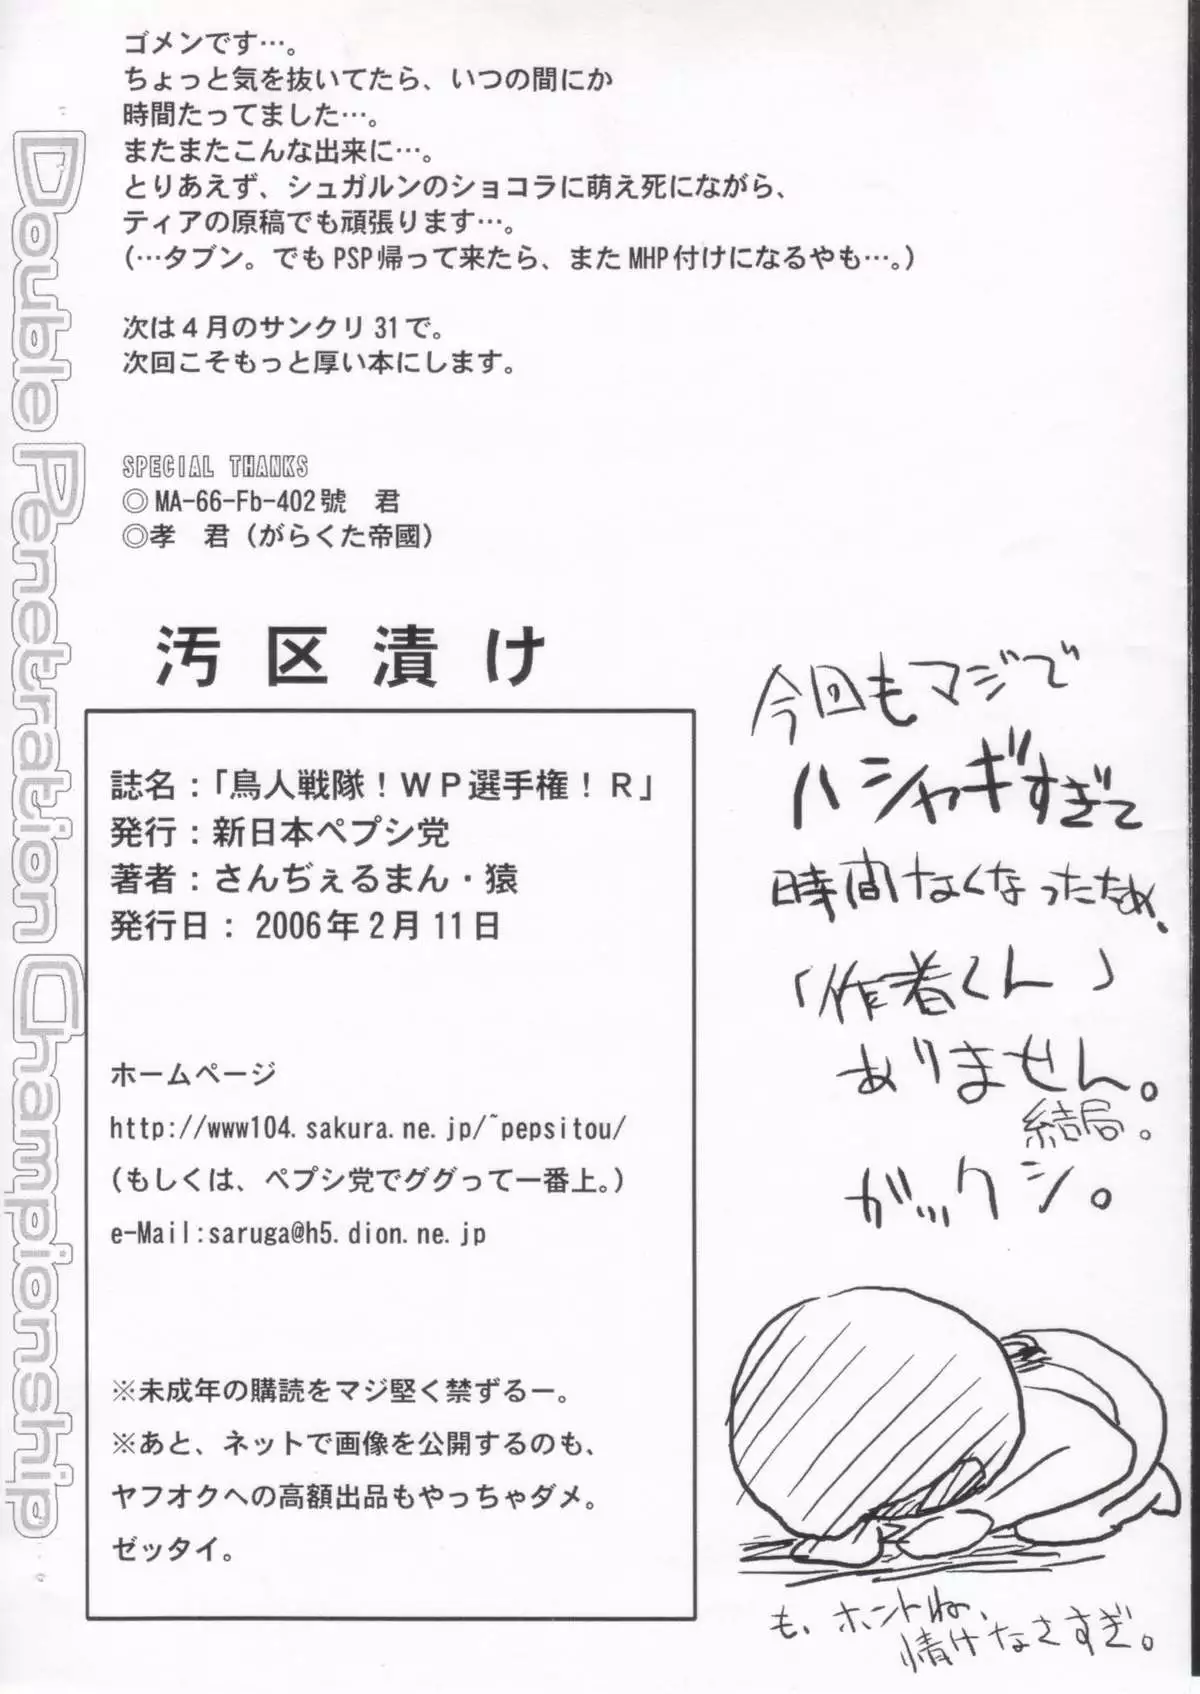 ゴメンです…。
ちょっと気を抜いてたら、いつの間にか
時間たってました…。
またまたこんな出来に…。
とりあえず、シュガルンのショコラに萌え死にながら、
ティアの原稿でも頑張ります…。
(…タブン。でもPSP帰って来たら、またMHP付けになるやも…。)
次は４月のサンクリ31で。
次回こそもっと厚い本にします。
SPECIAL THANKS
◎MA-66-Fb-402號　君
◎孝　君（がらくた帝國）
汚区漬け
誌名：「鳥人戦隊！ＷＰ選手権！Ｒ」
発行：新日本ペプシ党
著者：さんぢぇるまん・猿
発行日：2006年2月11日
ホームページ
http://www104.sakura.ne.jp/~pepsitou/
(もしくは、ペプシ党でググって一番上。)
e-Mail:saruga@h5.dion.ne.jp
※未成年の購読をマジ堅く禁ずるー。
※あと、ネットで画像を公開するのも、
ヤフオクへの高額出品もやっちゃダメ。
ゼッタイ。
Double Penetration Championship
今回もマジで
ハシャギすぎて
時間なくなったため、
「作者くん」
ありません。
結局。
ガックシ。
も、ホントね、
情けなさすぎ。